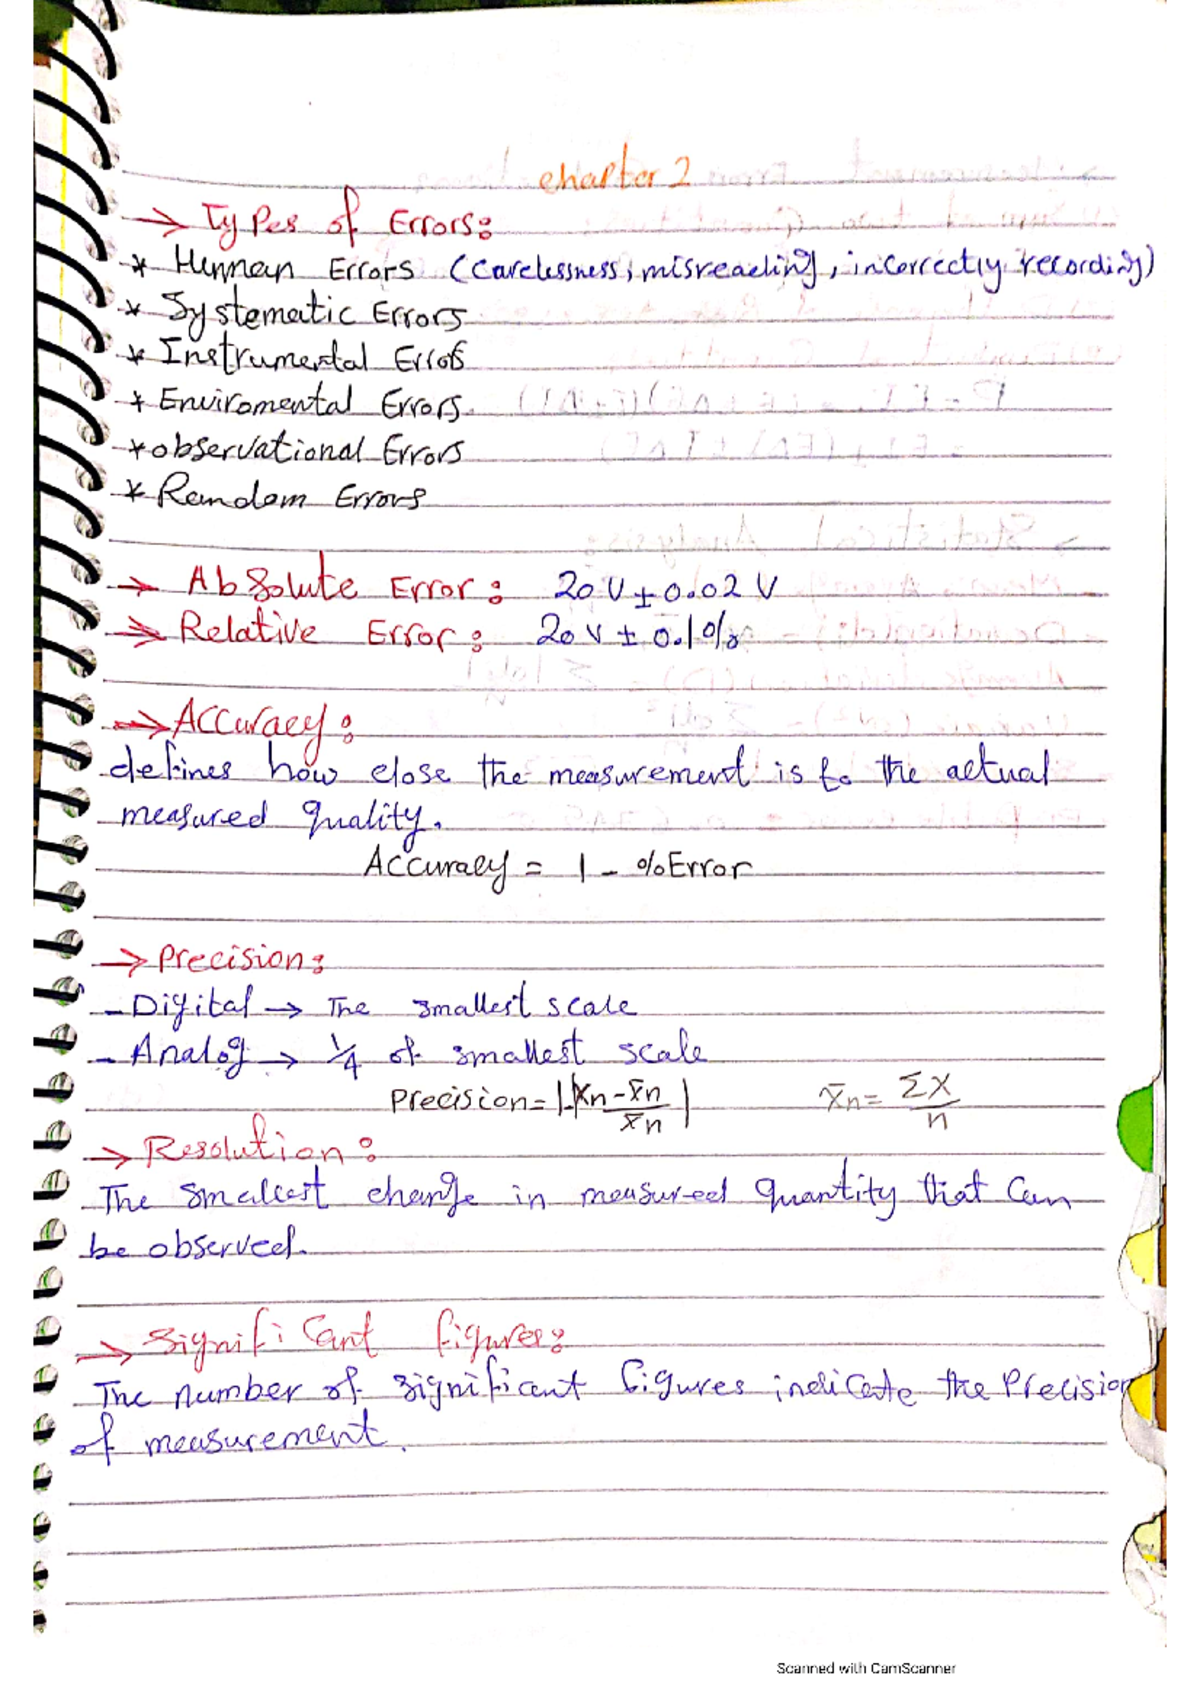 chapter 2
→ Types of Errors:
* Human Errors (carelessness, misreading, incorrectly recording)
* Systematic Errors
* Instrumental Errors
* Enviromental Errors
* observational Errors
* Random Errors
→ Absolute Error: 20 V ± 0.02 V
→ Relative Error: 20 V ± 0.1%
→ Accuracy:
defines how close the measurement is to the actual
measured quality.
Accuracy = 1 - %Error
→ Precision:
- Digital → The smallest scale
- Analog → 1/4 of smallest scale
Precision = |1-|Xn - X̄n / X̄n| X̄n = ΣX / n
→ Resolution:
The smallest change in measured quantity that can
be observed.
→ Significant figures:
The number of significant figures indicate the Precision
of measurement.
Scanned with CamScanner